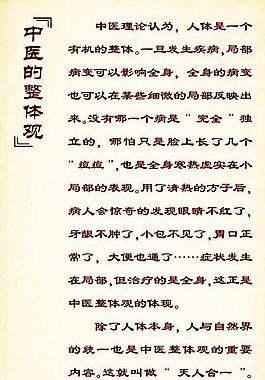 『中医的整体观』
中医理论认为，人体是一个
有机的整体。一旦发生疾病，局部
病变可以影响全身，全身的病变
也可以在某些细微的局部反映出
来。没有哪一个病是“完全”独
立的，哪怕只是脸上长了几个
“痘痘”，也是全身寒热虚实在小
局部的表现。用了清热的方子后，
病人会惊奇的发现眼睛不红了，
牙龈不肿了，小包不见了，胃口正
常了，大便也通了……症状发生
在局部，但治疗的是全身，这正是
中医整体观的体现。
除了人体本身，人与自然界
的统一也是中医整体观的重要
内容。这就叫做“天人合一”。